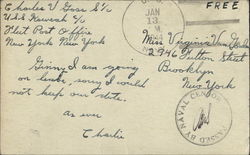 Charles V Goss S/c
U.S.S. Kaweah c/o
Fleet Post Office
New York New York
JAN
13
M
FREE
Miss Virginia Van
2946 Fulton Street
Brooklyn
New York
Ginny, I am going
on leave, sorry I could
not keep our date.
as ever
Charlie
PASSED BY NAVAL CENSOR